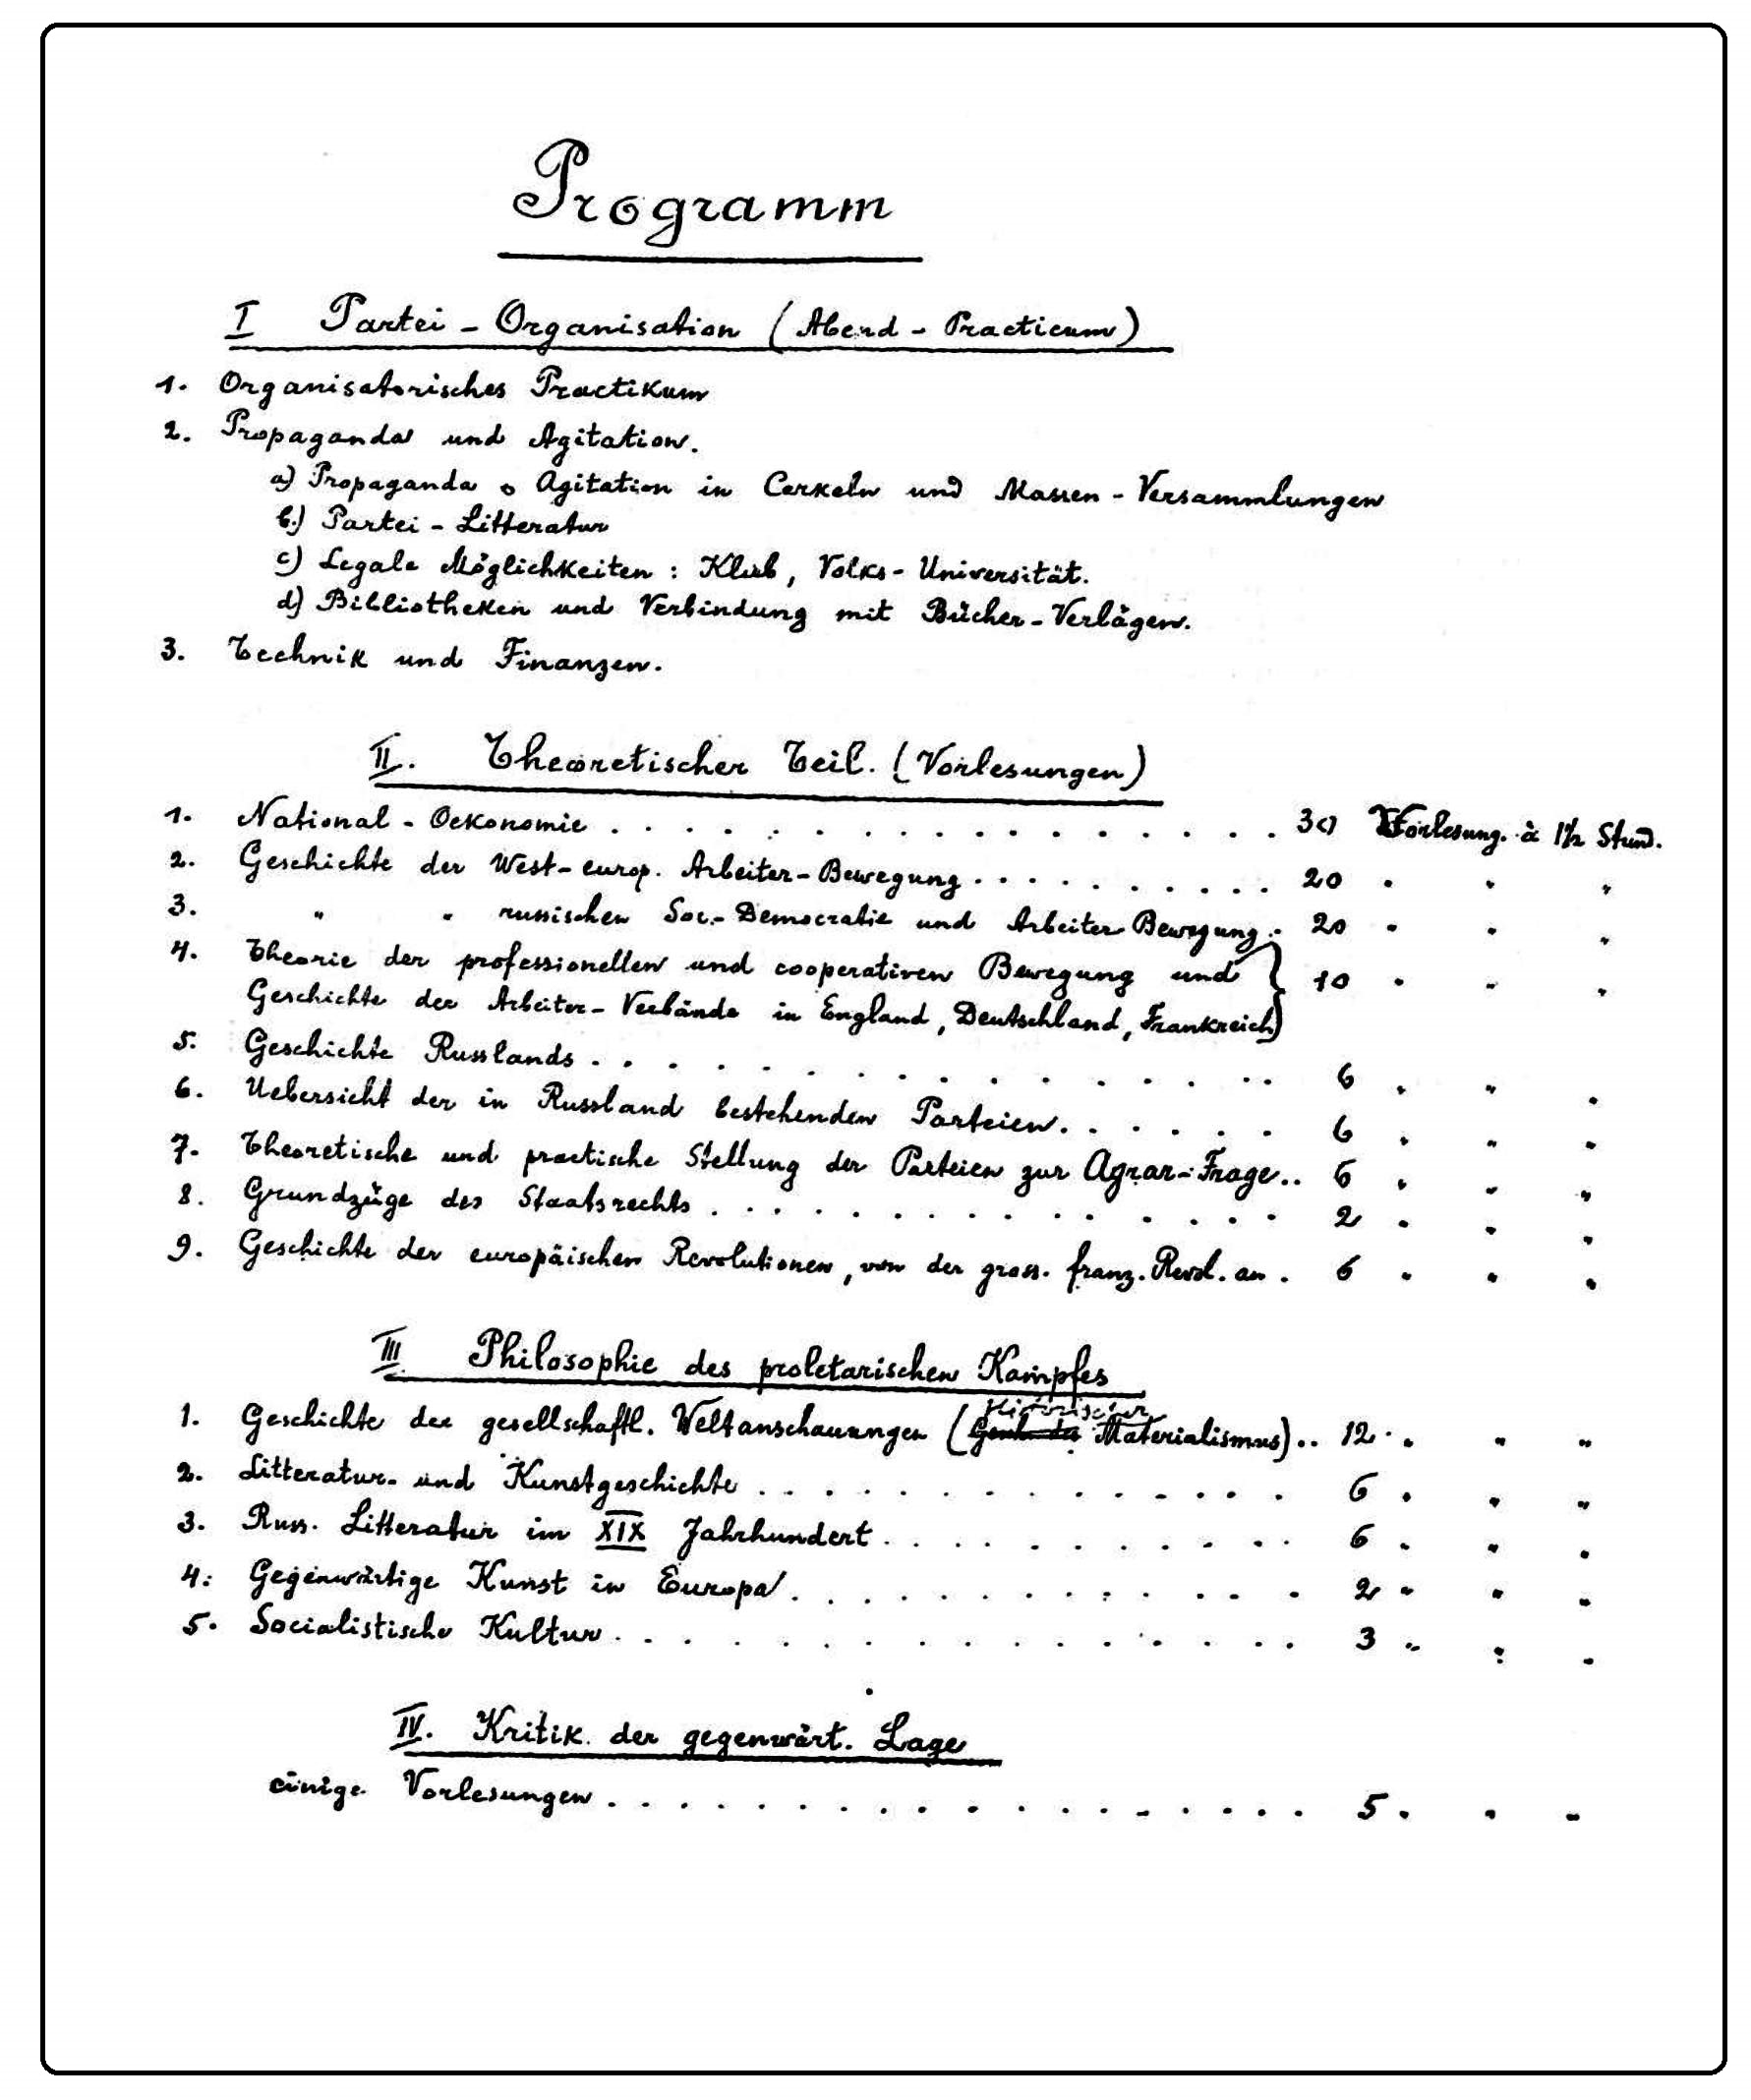 Programm
I Partei - Organisation (Abend - Practicum)
1. Organisatorisches Practikum
2. Propaganda und Agitation.
a) Propaganda o Agitation in Cerkeln und Massen - Versammlungen
b.) Partei - Litteratur
c) Legale Möglichkeiten : Klub, Volks - Universität.
d) Bibliotheken und Verbindung mit Bücher - Verlägen.
3. Technik und Finanzen.
II. Theoretischer Teil. (Vorlesungen)
1. National - Oekonomie . . . . . . . . . . . . . . . . 30 Vorlesung. à 1½ Stund.
2. Geschichte der West - europ. Arbeiter - Bewegung . . . . . . . . . . 20 " " "
3. " " russischen Soc.- Democratie und Arbeiter Bewegung . . 20 " " "
4. Theorie der professionellen und cooperativen Bewegung und } 10 " " "
Geschichte der Arbeiter - Verbände in England, Deutschland, Frankreich
5. Geschichte Russlands . . . . . . . . . . . . . . . . 6 " " "
6. Uebersicht der in Russland bestehenden Parteien . . . . . . 6 " " "
7. Theoretische und practische Stellung der Parteien zur Agrar - Frage . . 6 " " "
8. Grundzüge des Staatsrechts . . . . . . . . . . . . . . 2 " " "
9. Geschichte der europäischen Revolutionen, von der gross. franz. Revol. an . 6 " " "
III. Philosophie des proletarischen Kampfes
1. Geschichte der gesellschaftl. Weltanschauungen (Historischer Materialismus) . . 12 " " "
2. Litteratur- und Kunstgeschichte . . . . . . . . . . . . . 6 " " "
3. Russ. Litteratur im XIX Jahrhundert . . . . . . . . . . 6 " " "
4. Gegenwärtige Kunst in Europa . . . . . . . . . . . . . 2 " " "
5. Socialistische Kultur . . . . . . . . . . . . . . . . 3 " " "
IV. Kritik der gegenwärt. Lage
einige Vorlesungen . . . . . . . . . . . . . . . . . . 5 " " "